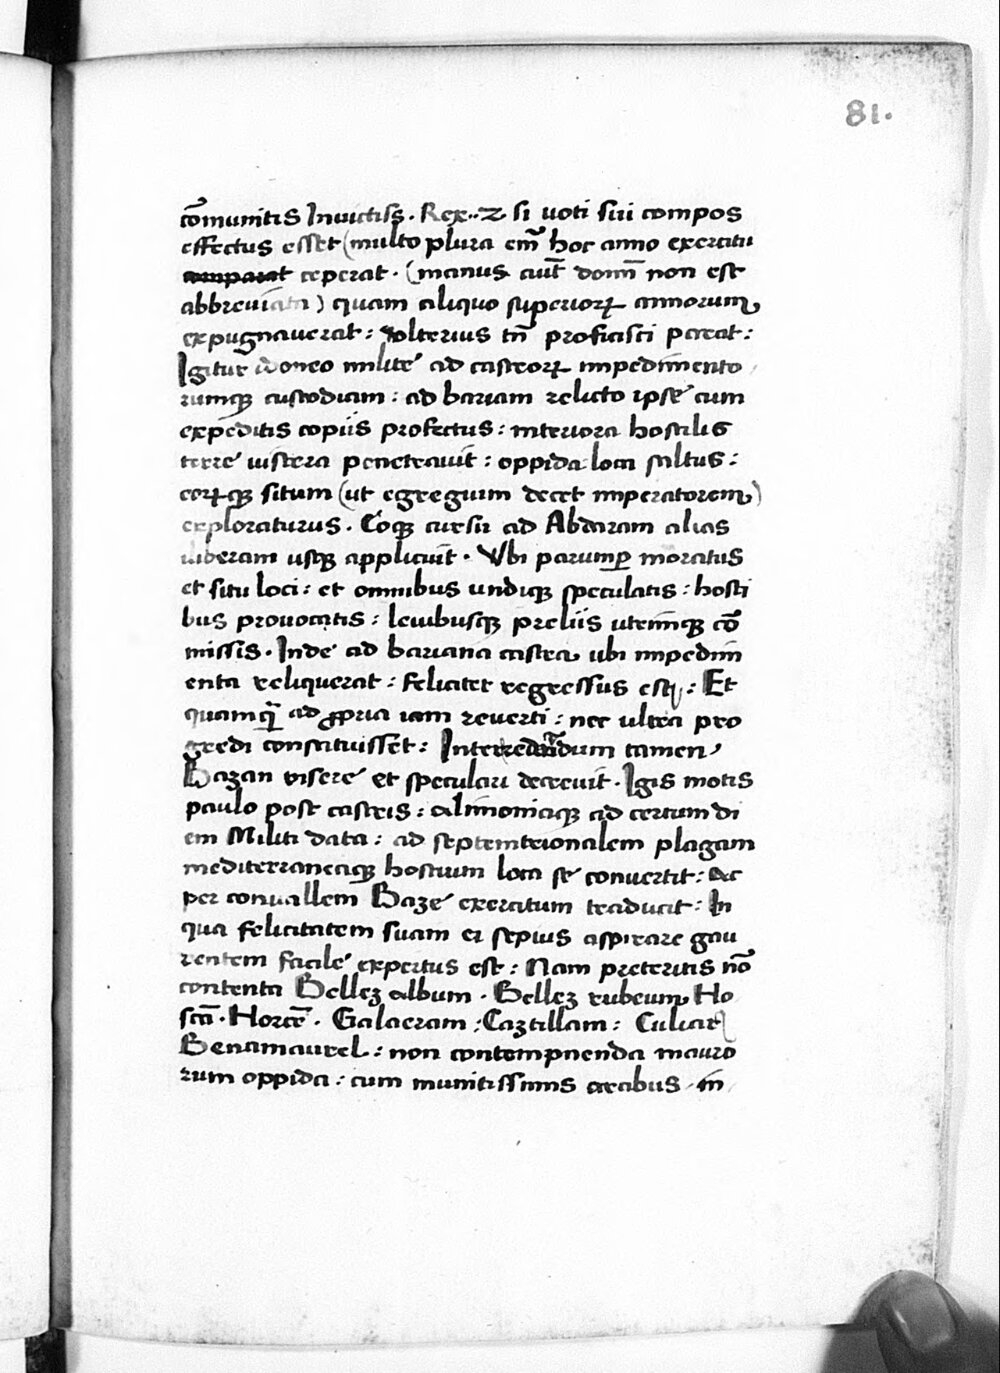 81.
cōmunitis Inuictiss. Rex.. z si uoti sui compos
effectus esset (multo plura em̄ hoc anno exercitu
comparat ceperat. (manus aut̄ domī non est
abbreuiata) quam aliquo superioꝝ annorum,
expugnauerat: vlterius tn̄ proficisci parat:
Igitur idoneo milite ad castroꝝ impedimento
rumqꝫ custodiam: ad bariam relicto ipse cum
expeditis copiis profectus: interiora hostilis
terre uiscera penetrauit: oppida loca saltus:
eoꝝqꝫ situm (ut egregium decet imperatorem)
exploraturus. Eoqꝫ cursu ad Abdaram alias
iliberam usqꝫ applicuit. Vbi parumꝑ moratus
et situ loci: et omnibus undiqꝫ speculatis: hosti
bus prouocatis: leuibusqꝫ preliis utrimqꝫ cō
missis. Inde ad bariana castra, ubi impedim
enta reliquerat: feliciter regressus est: Et
quamqꝫ̄ ad ꝓpria iam reuerti: nec ultra pro
gredi constituisset: Interredeundum tamen,
Bazan visere et speculari decreuit. Igis motis
paulo post castris: alimoniaqꝫ ad certum di
em Militi data: ad septemtrionalem plagam
mediterraneaqꝫ hostium loca se conuertit: Ac
per conuallem Baze exercitum traducit: In
qua felicitatem suam ei sepius aspirare gau
rentem facile expertus est: Nam preteritis nō
contenta Bellez album. Bellez rubeum, Ho
scā. Horcē. Galaeram: Caztillam: Culiar
Benamaurel: non contempnenda mauro
rum oppida: cum munitissimis arcibus in